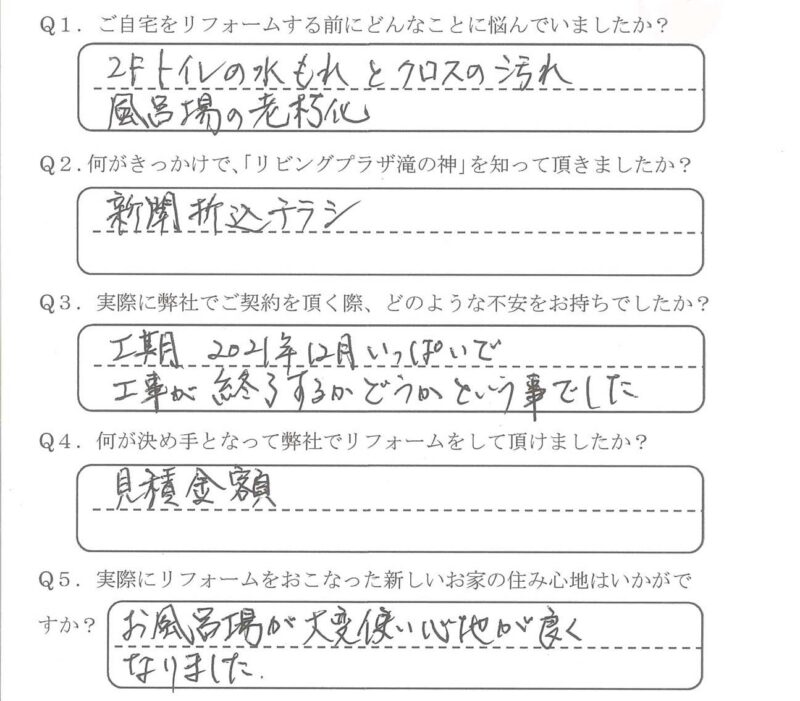 Q1．ご自宅をリフォームする前にどんなことに悩んでいましたか？
2Fトイレの水もれとクロスの汚れ
風呂場の老朽化
Q2.何がきっかけで、「リビングプラザ滝の神」を知って頂きましたか？
新聞折込チラシ
Q3．実際に弊社でご契約を頂く際、どのような不安をお持ちでしたか？
工期 2021年12月いっぱいで
工事が終了するかどうかという事でした
Q4．何が決め手となって弊社でリフォームをして頂けましたか？
見積金額
Q5．実際にリフォームをおこなった新しいお家の住み心地はいかがで
すか？ お風呂場が大変使い心地が良く
なりました.